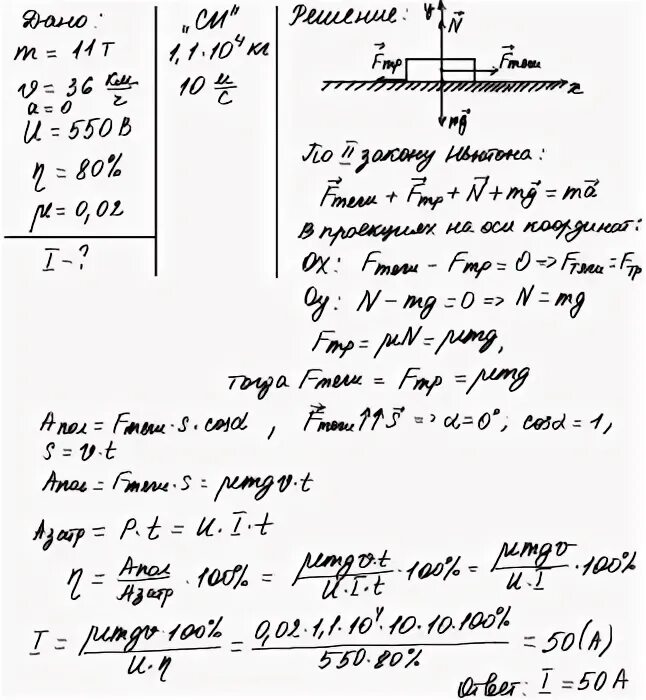 Дано:
m = 11 т
υ = 36 км/ч
a = 0
U = 550 В
η = 80%
μ = 0,02
I - ?
„СИ"
1,1·10⁴ кг
10 м/с
Решение:
y
N⃗
F⃗тр
F⃗тяги
x
mg⃗
По II закону Ньютона:
F⃗тяги + F⃗тр + N⃗ + mg⃗ = ma⃗
В проекциях на оси координат:
Ox: Fтяги - Fтр = 0 => Fтяги = Fтр
Oy: N - mg = 0 => N = mg
Fтр = μN = μmg,
тогда Fтяги = Fтр = μmg
Aпол = Fтяги·s·cosα, F⃗тяги ↑↑ s⃗ => α = 0°; cosα = 1,
s = υ·t
Aпол = Fтяги·s = μmgυ·t
Aзатр = P·t = U·I·t
η = Aпол/Aзатр · 100% = μmgυ·t/U·I·t · 100% = μmgυ/U·I · 100%
I = μmgυ·100%/U·η = 0,02·1,1·10⁴·10·10·100%/550·80% = 50 (А)
Ответ: I = 50 А